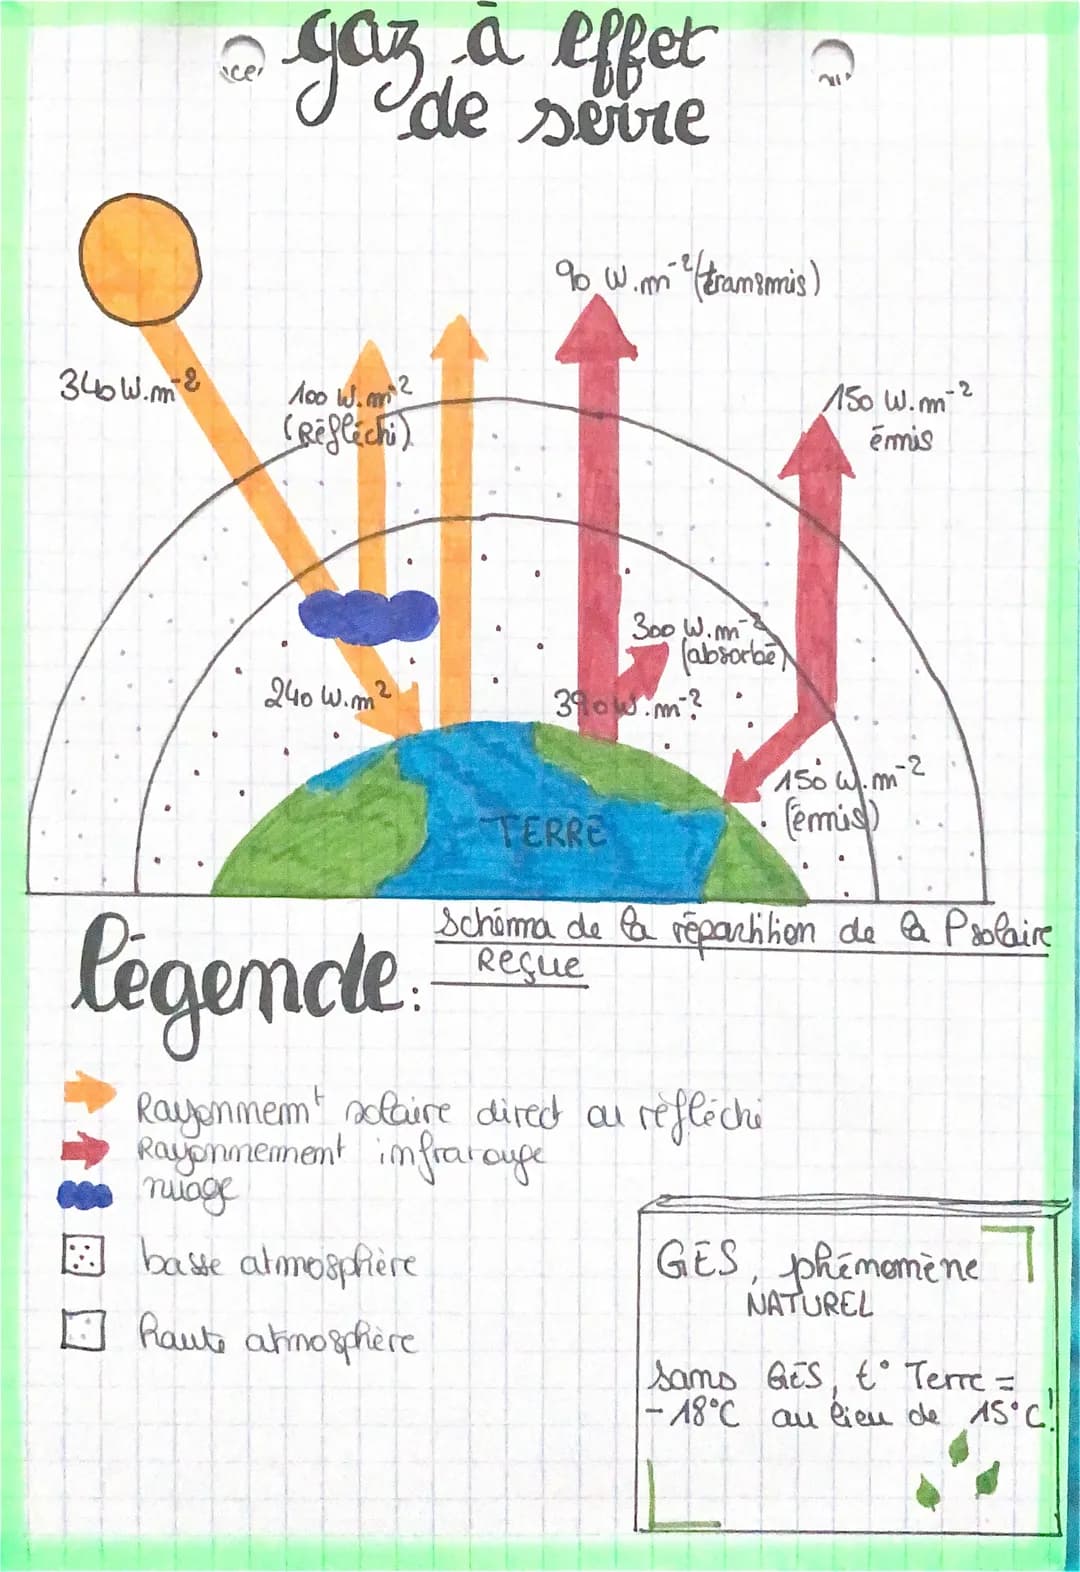 gaz à effet
de serre
90 W.m⁻² (transmis)
340 W.m⁻²
100 W.m⁻²
(Réfléchi)
150 W.m⁻²
émis
300 W.m⁻²
(absorbé)
240 W.m²
390 W.m⁻²
150 W.m⁻²
(émis)
TERRE
Schéma de la répartition de la P solaire
Reçue
légende:
Rayonnemᵗ solaire direct ou réfléchi
Rayonnement infrarouge
nuage
basse atmosphère
haute atmosphère
GES, phénomène
NATUREL
sans GES, t° Terre =
-18°C au lieu de 15°C!